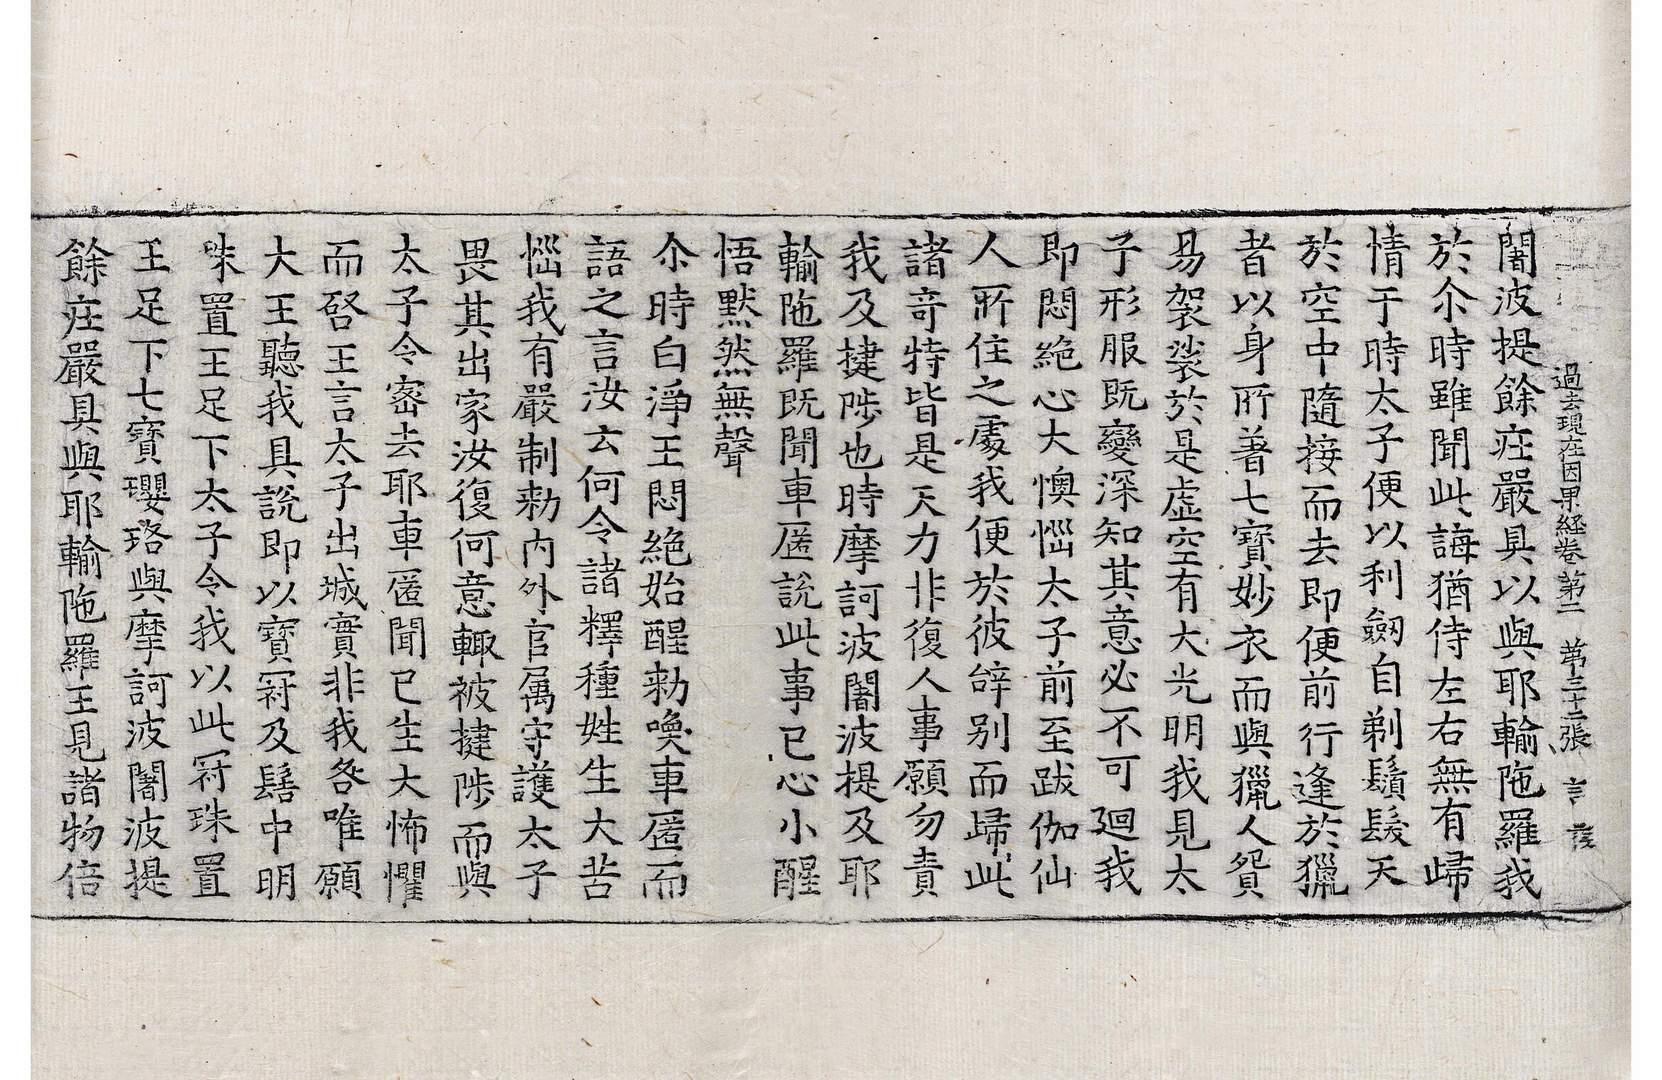 過去現在因果経卷第二　第三十二張　言
闍波提餘疘嚴具以與耶輸陁羅我
於尒時雖聞此誨猶侍左右無有歸
情于時太子便以利劒自剃鬚髮天
於空中隨接而去即便前行逢於獵
者以身所著七寶妙衣而與獵人貿
易袈裟於是虛空有大光明我見太
子形服既變深知其意必不可迴我
即悶絶心大懊惱太子前至跋伽仙
人所住之處我便於彼辝別而歸此
諸奇特皆是天力非復人事願勿責
我及揵陟也時摩訶波闍波提及耶
輸陁羅既聞車匿說此事已心小醒
悟黙然無聲
尒時白淨王悶絶始醒勑喚車匿而
語之言汝云何令諸釋種姓生大苦
惱我有嚴制勑內外官属守護太子
畏其出家汝復何意輙被揵陟而與
太子令密去耶車匿聞已生大怖懼
而啓王言太子出城實非我咎唯願
大王聽我具說即以寶冠及髻中明
珠置王足下太子令我以此冠珠置
王足下七寶瓔珞與摩訶波闍波提
餘疘嚴具與耶輸陁羅王見諸物倍